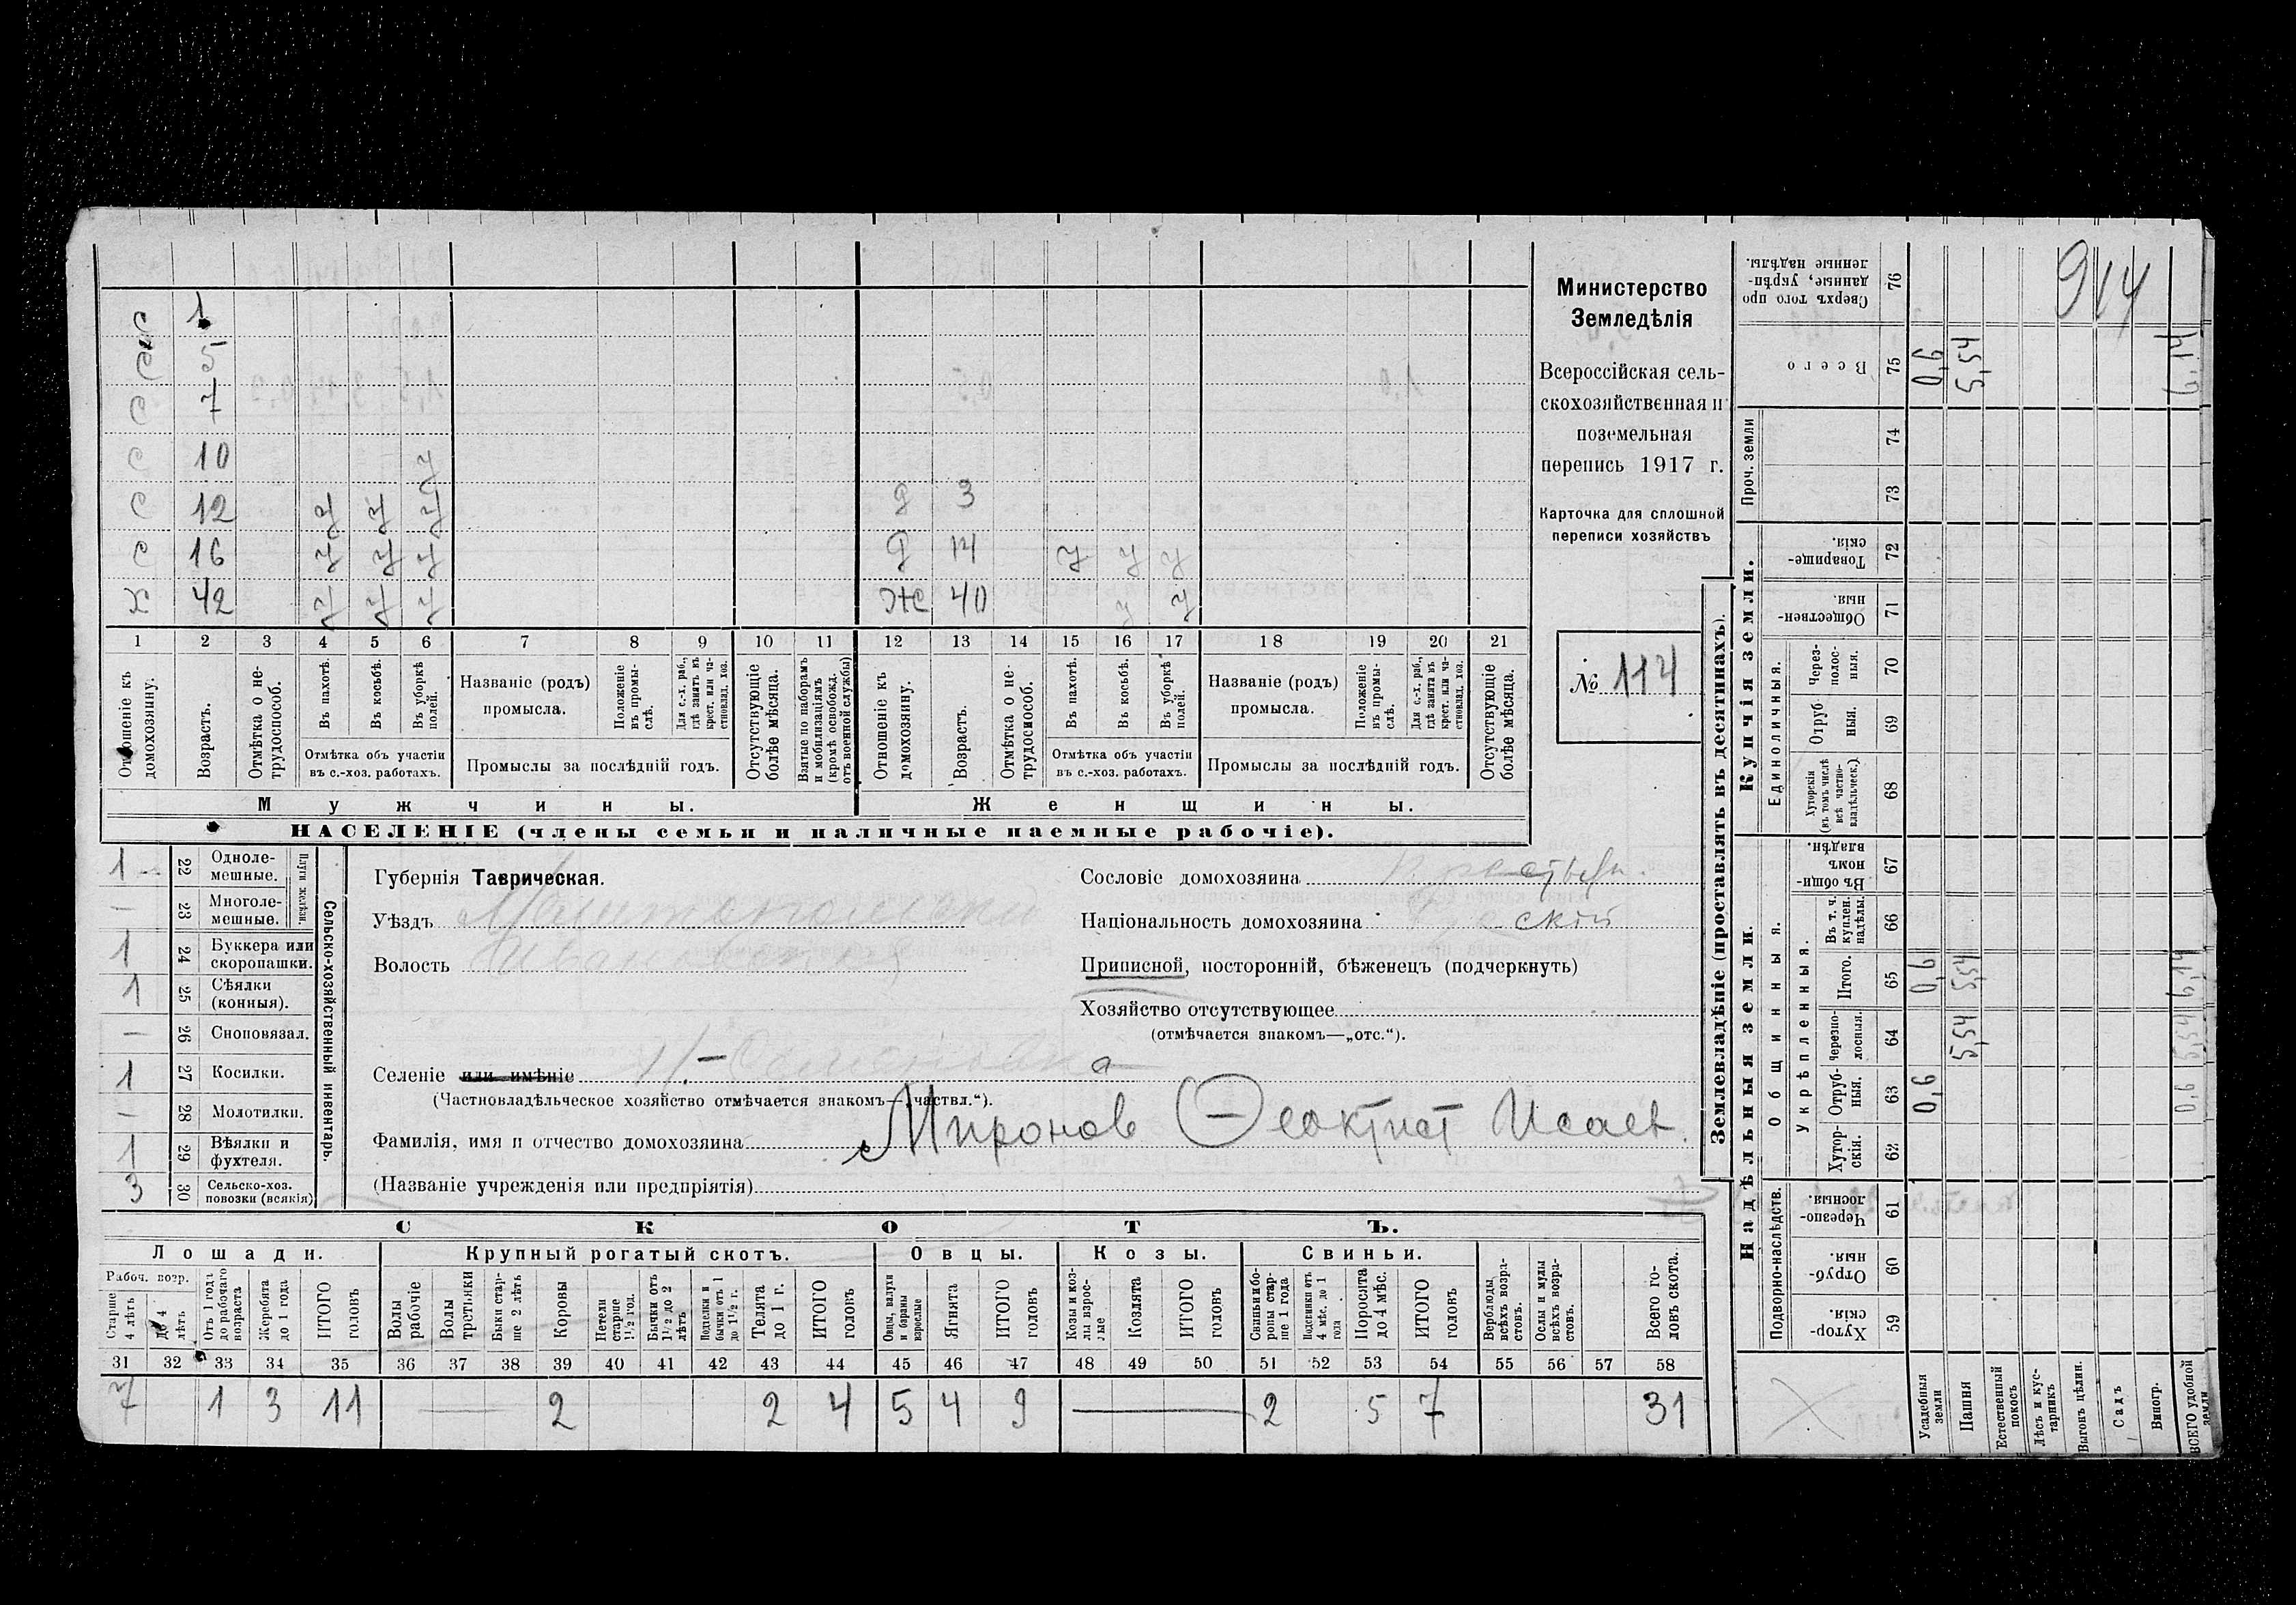 С 1
С 5
С 7
С 10 у
С 12 у у у д 3
С 16 у у у д 14 у у у
Х 42 у у у Ж 40 у у
1 2 3 4 5 6 7 8 9 10 11 12 13 14 15 16 17 18 19 20 21
Отношеніе къ домохозяину.
Возрастъ.
Отмѣтка о нетрудоспособ.
Въ пахотѣ.
Въ косьбѣ.
Въ уборкѣ полей.
Отмѣтка объ участіи
въ с.-хоз. работахъ.
Названіе (родъ)
промысла.
Положеніе въ промыслѣ.
Для с.-х. раб., гдѣ занятъ въ крест. или частновлад. хоз.
Промыслы за послѣдній годъ.
Отсутствующіе болѣе мѣсяца.
Взятые по наборамъ и мобилизаціямъ (кромѣ освобожд. отъ военной службы)
Отношеніе къ домохозяину.
Возрастъ.
Отмѣтка о нетрудоспособ.
Въ пахотѣ.
Въ косьбѣ.
Въ уборкѣ полей.
Отмѣтка объ участіи
въ с.-хоз. работахъ.
Названіе (родъ)
промысла.
Положеніе въ промыслѣ.
Для с.-х. раб., гдѣ занята въ крест. или частновлад. хоз.
Промыслы за послѣдній годъ.
Отсутствующіе болѣе мѣсяца.
Мужчины.
Женщины.
НАСЕЛЕНІЕ (члены семьи и наличные наемные рабочіе).
Министерство
Земледѣлія
Всероссійская сель-
скохозяйственная и
поземельная
перепись 1917 г.
Карточка для сплошной
переписи хозяйствъ
№ 114
1 22 Одноле-
мешные.
— 23 Многоле-
мешные.
Плуги желѣзн.
1 24 Буккера или
скоропашки.
1 25 Сѣялки
(конныя).
— 26 Сноповязал.
1 27 Косилки.
— 28 Молотилки.
1 29 Вѣялки и
фухтеля.
3 30 Сельско-хоз.
повозки (всякія)
Сельско-хозяйственный инвентарь.
Губернія Таврическая.
Уѣздъ Мелитопольскій
Волость Ивановская
Сословіе домохозяина крестьян.
Національность домохозяина Русскій
Приписной, посторонній, бѣженецъ (подчеркнуть)
Хозяйство отсутствующее
(отмѣчается знакомъ—„отс.“).
Селеніе или имѣніе Н.-Семеновка
(Частновладѣльческое хозяйство отмѣчается знакомъ—„частвл.“).
Фамилія, имя и отчество домохозяина Миронов Ѳеоктист Исаев.
(Названіе учрежденія или предпріятія)
СКОТЪ.
Лошади. Крупный рогатый скотъ. Овцы. Козы. Свиньи.
Рабоч. возр.
Старше 4 лѣтъ
до 4 лѣтъ
Отъ 1 года до рабочаго возраста
Жеребята до 1 года
ИТОГО головъ
Волы рабочіе
Волы третьяки
Быки старше 2 лѣтъ
Коровы
Нетели старше 1½ год.
Бычки отъ 1½ до 2 лѣтъ
Подтелки и бычки отъ 1 до 1½ г.
Телята до 1 г.
ИТОГО головъ
Овцы, валухи и бараны взрослые
Ягнята
ИТОГО головъ
Козы и козлы взрослые
Козлята
ИТОГО головъ
Свиньи и боровы старше 1 года
Подсвинки отъ 4 мѣс. до 1 года
Поросята до 4 мѣс.
ИТОГО головъ
Верблюды всѣхъ возрастовъ.
Ослы и мулы всѣхъ возрастовъ.
Всего головъ скота.
31 32 33 34 35 36 37 38 39 40 41 42 43 44 45 46 47 48 49 50 51 52 53 54 55 56 57 58
7 1 3 11 — 2 2 4 5 4 9 — 2 5 7 31
Землевладѣніе (проставлять въ десятинахъ).
Купчія земли.
Надѣльныя земли.
914
Сверхъ того проданные, укрѣпленные надѣлы. 76
Всего 75 0,6 5,54 6,14
Проч. земли 74
73
Товарищескія. 72
Общественныя. 71
Единоличныя.
Черезполосныя. 70
Отрубныя. 69
Хуторскія (въ томъ числѣ всѣ частновладѣльческ.). 68
Общинныя.
Укрѣпленныя.
Въ общинномъ владѣн. 67
Въ т. ч. куплен. надѣлы. 66
Итого. 65 0,6 5,54 6,14
Черезполосныя. 64 5,54 5,54
Отрубныя. 63 0,6 0,6
Хуторскія. 62
Подворно-наслѣдств.
Черезполосныя. 61
Отрубныя. 60
Хуторскія. 59
Усадебныя земли
Пашня
Естественный покосъ
Лѣсъ и кустарникъ
Выгонъ цѣлин.
Садъ
Виногр.
ВСЕГО удобной земли